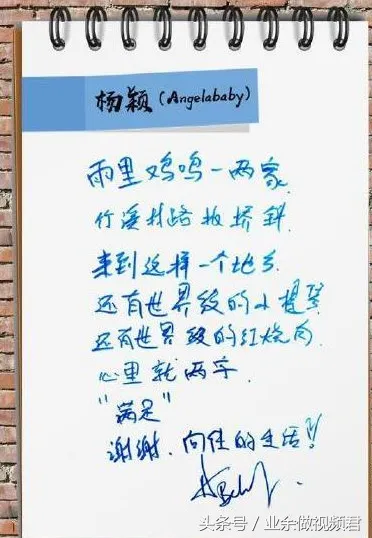 杨颖(Angelababy)
雨里鸡鸣一两家
竹溪村路板桥斜
来到这样一个地方
还有世界级的小提琴
还有世界级的红烧肉
心里就两字
"满足"
谢谢.向往的生活!!
头条号/业余做视频君